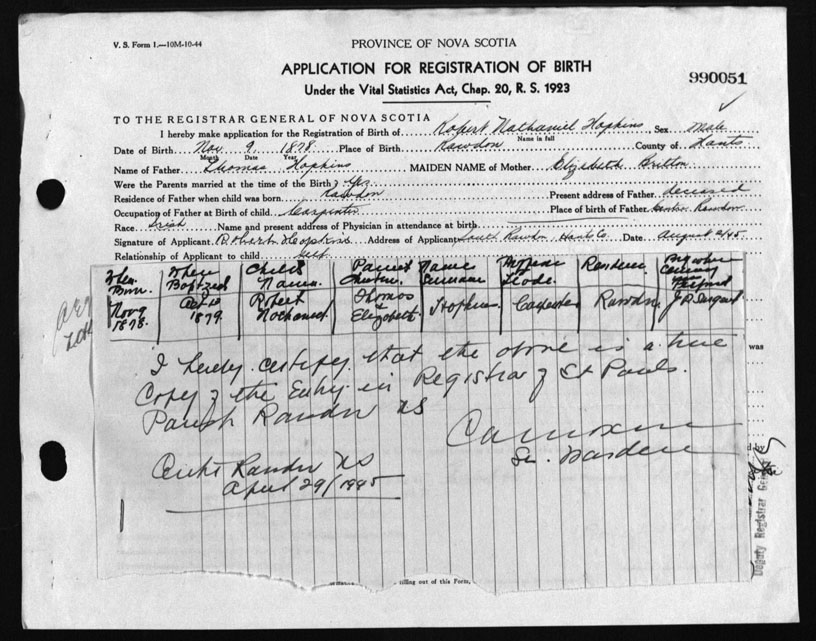 V. S. Form 1.—10M-10-44
PROVINCE OF NOVA SCOTIA
APPLICATION FOR REGISTRATION OF BIRTH
990051
Under the Vital Statistics Act, Chap. 20, R. S. 1923
TO THE REGISTRAR GENERAL OF NOVA SCOTIA
I hereby make application for the Registration of Birth of Robert Nathaniel Hopkins, Sex Male
Name in full
Date of Birth Nov. 9 1878 Place of Birth Rawdon County of Hants
Month Date Year
Name of Father Thomas Hopkins MAIDEN NAME of Mother Elizabeth Britton
Were the Parents married at the time of the Birth? Yes
Residence of Father when child was born Rawdon Present address of Father deceased
Occupation of Father at Birth of child Carpenter Place of birth of Father Rawdon
Race Irish Name and present address of Physician in attendance at birth
Signature of Applicant Robert Hopkins Address of Applicant South Rawdon Hants Co. Date August 2/45
Relationship of Applicant to child Self
When Born Where Baptized Child's Name Parents Name Surname Trade By whom
Nov 9 1878 1879 Robert Nathaniel Thomas & Elizabeth Hopkins Carpenter Rawdon
I hereby certify that the above is a true
Copy of the Entry in Registrar of St Pauls
was
Parish Rawdon NS
Rawdon NS
April 29/1945
Deputy Registrar General
filling out of this Form,